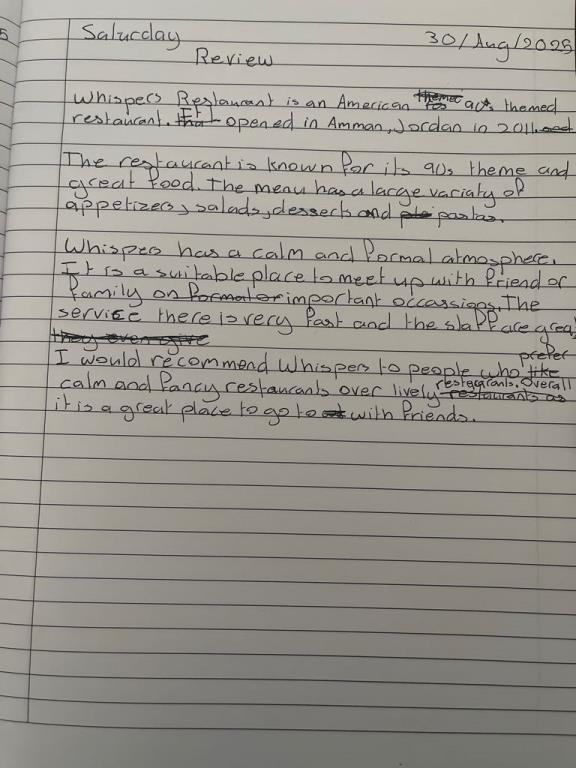 5
Saturday 30/Aug/2025
Review
Whispers Restaurant is an American themed 90s themed
restaurant. It opened in Amman, Jordan in 2011. and
The restaurant is known for its 90s theme and
great food. The menu has a large variaty of
appetizers, salads, desserts and pastas.
Whispers has a calm and formal atmosphere.
It is a suitable place to meet up with friend or
family on formal or important occassions. The
service there is very fast and the staff are great
they even give
prefer
I would recommend Whispers to people who like
calm and fancy restaurants over lively restaurants. Overall
restaurants as
it is a great place to go to with friends.